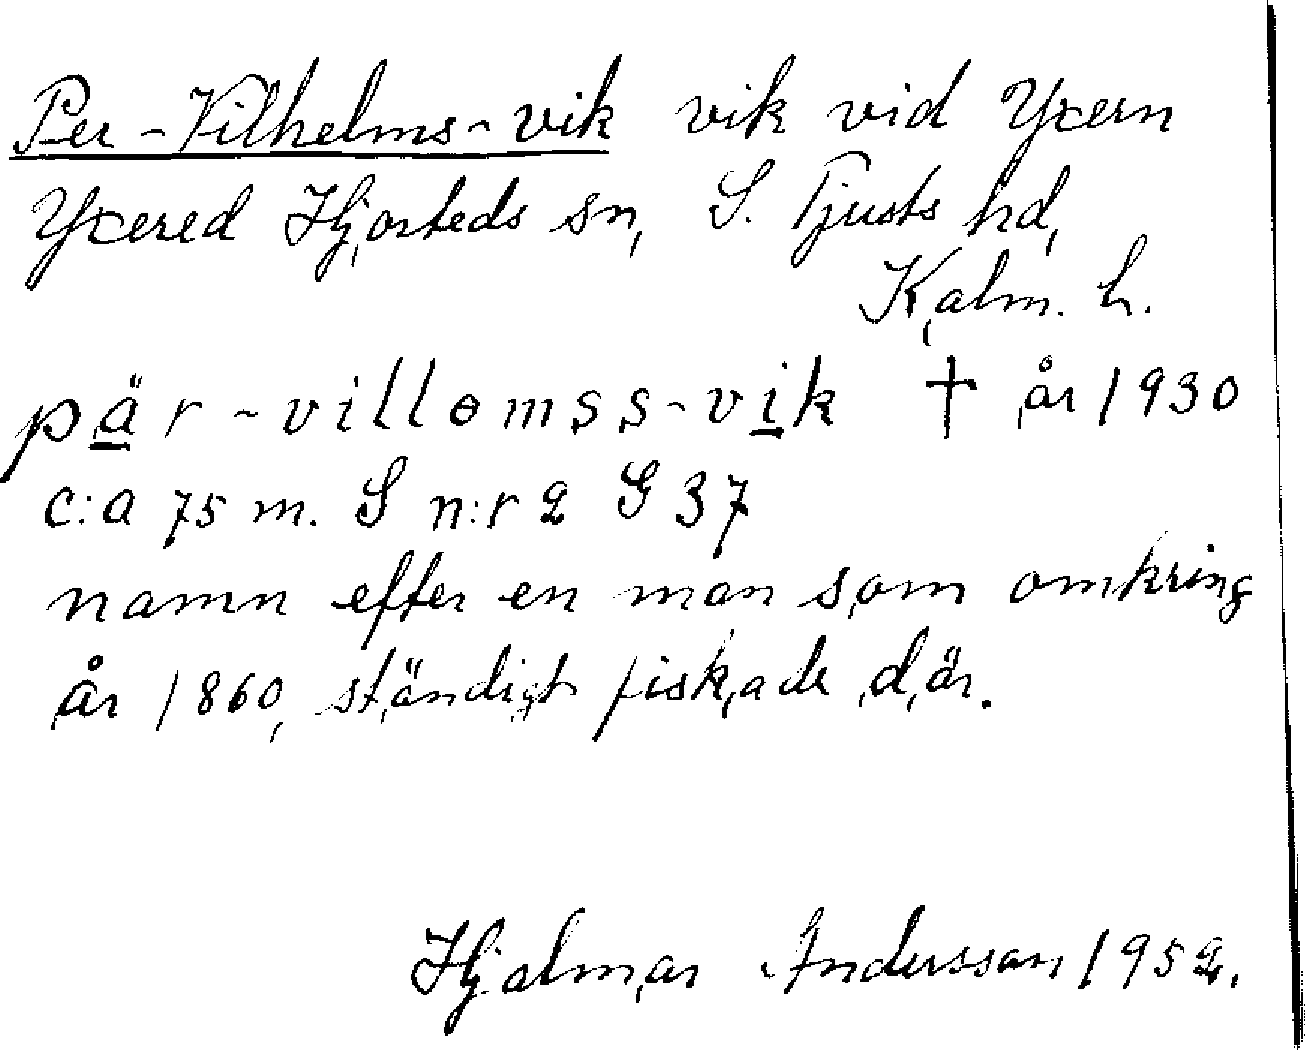 Per-Vilhelms-vik vik vid Yxern
Yxered Hjorteds sn, S. Tjusts hd,
Kalm. L.
pär-villomss-vik † år 1930
c:a 75 m. S n:r 2 G 37
namn efter en man som omkring
år 1860, ständigt fiskade där.
Hjalmar Andersson 1952.